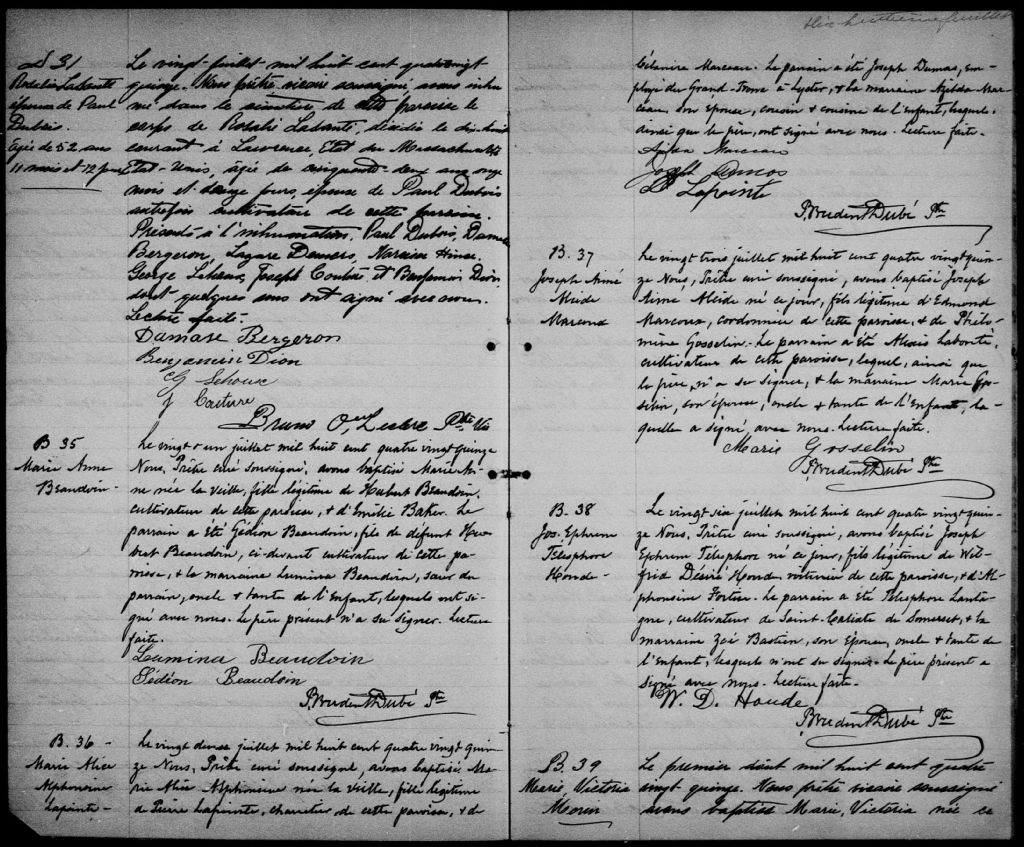 S 31
Rosalie Labonté
épouse de Paul
Dubois.
âgée de 52 ans
11 mois et 12 jours
Le vingt juillet mil huit cent quatrevingt
quinze. Nous prêtre vicaire soussigné avons inhu
mé dans le cimetière de cette paroisse le
corps de Rosalie Labonté, décédée le dix-huit
courant à Lawrence, Etat du Massachusetts
Etat-Unis, âgée de cinquante-deux ans onze
mois et douze jours, épouse de Paul Dubois
autrefois cultivateur de cette paroisse.
Présents à l'inhumation, Paul Dubois, Damase
Bergeron, Lazare Demers, Narcisse
George Lehoux, Joseph Couture et Benjamin Dion
dont quelques uns ont signé avec nous.
Lecture faite.
Damase Bergeron
Benjamin Dion
G Lehoux
J Couture
Bruno O. Leclerc Ptre Vic
B 35
Marie Anne
Beaudoin-
Le vingt et un juillet mil huit cent quatre vingt quinze
Nous, Prêtre curé soussigné, avons baptisé Marie An-
ne née la veille, fille légitime de Hubert Beaudoin,
cultivateur de cette paroisse, & d'Emilie Baker. Le
parrain a été Gédéon Beaudoin, fils de défunt Hu-
bert Beaudoin, ci-devant cultivateur de cette pa-
roisse, & la marraine Lumina Beaudoin, sœur du
parrain, oncle & tante de l'Enfant, lesquels ont si-
gné avec nous. Le père présent n'a su signer. Lecture
faite.
Lumina Beaudoin
Gédéon Beaudoin
P. Prudent Dubé Ptre
B. 36 -
Marie Alice
Alphonsine
Lapointe-
Le vingt deux juillet mil huit cent quatre vingt quin-
ze Nous, Prêtre curé soussigné, avons baptisé Ma-
rie Alice Alphonsine née la veille, fille légitime
de Pierre Lapointe, charretier de cette paroisse, & de
dix huitième feuillet
Célanire Marceau. Le parrain a été Joseph Dumas, em-
ployé du Grand Tronc à Lyster, & la marraine Azilda Mar-
ceau, son épouse, cousin & cousine de l'Enfant, lesquels
ainsi que le père, ont signé avec nous. Lecture faite-
Azilda Marceau
Joseph Dumas
Lapointe
P. Prudent Dubé Ptre
B. 37
Joseph Aimé
Alcide
Marcoux
Le vingt trois juillet mil huit cent quatre vingt quin-
ze Nous, Prêtre curé soussigné, avons baptisé Joseph
Aimé Alcide né ce jour, fils légitime d'Edmond
Marcoux, cordonnier de cette paroisse, & de Philo-
mène Gosselin. Le parrain a été Alexis Labonté,
cultivateur de cette paroisse, lequel, ainsi que
le père, n'a su signer, & la marraine Marie Gos-
selin, son épouse, oncle & tante de l'Enfant, la-
quelle a signé avec nous. Lecture faite.
Marie Gosselin
P. Prudent Dubé Ptre
B. 38
Jos. Ephrem
Telesphore
Houde-
Le vingt six juillet mil huit cent quatre vingt quin-
ze Nous, Prêtre curé soussigné, avons baptisé Joseph
Ephrem Telesphore né ce jour, fils légitime de Wil-
frid Désiré Houde voiturier de cette paroisse, & d'Al-
phonsine Fortier. Le parrain a été Telesphore Lanta-
gne, cultivateur de Saint-Calixte de Somerset, & la
marraine Zoé Bastien, son épouse, oncle & tante de
l'Enfant, lesquels n'ont su signer. Le père présent a
signé avec nous. Lecture faite-
W. D. Houde
P. Prudent Dubé Ptre
B. 39
Marie, Victoria
Morin
Le premier août mil huit cent quatre
vingt quinze. Nous prêtre vicaire soussigné
avons baptisé Marie, Victoria née ce